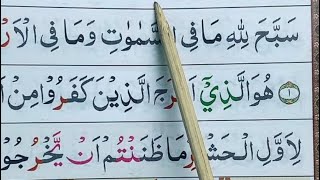 سَبَّحَ لِلّٰهِ مَا فِي السَّمٰوٰتِ وَمَا فِي الْاَرْ
۱ هُوَ الَّذِيْٓ اَخْرَجَ الَّذِيْنَ كَفَرُوْا مِنْ اَ
لِاَوَّلِ الْحَشْرِ مَا ظَنَنْتُمْ اَنْ يَّخْرُجُوْا